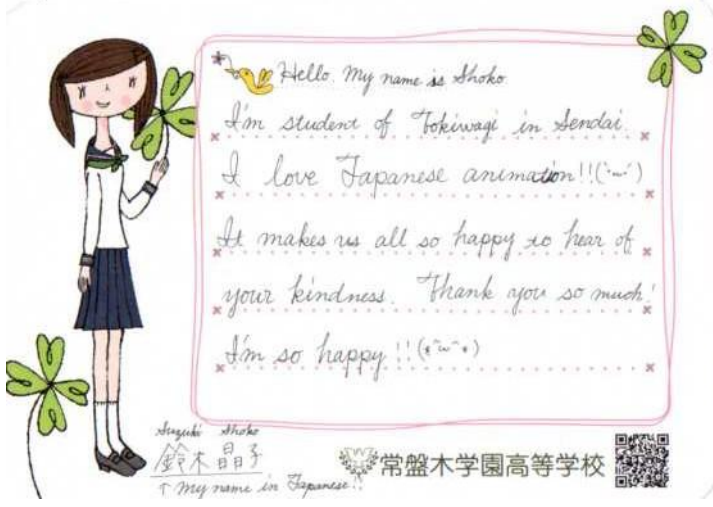 Hello. My name is Shoko.
I'm student of Tokiwagi in Sendai.
I love Japanese animation!!(`~´)
It makes us all so happy to hear of
your kindness. Thank you so much!
I'm so happy!!(*^w^*)
Suzuki Shoko
鈴木晶子
↑ My name in Japanese!!
常盤木学園高等学校